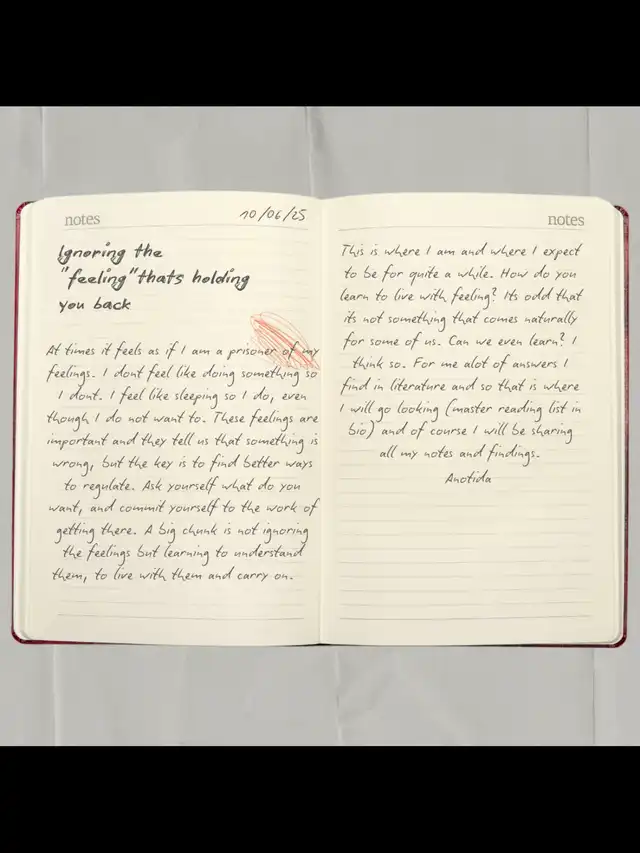 notes
10/06/25
Ignoring the
"feeling"thats holding
you back
At times it feels as if I am a prisoner of my
feelings. I dont feel like doing something so
I dont. I feel like sleeping so I do, even
though I do not want to. These feelings are
important and they tell us that something is
wrong, but the key is to find better ways
to regulate. Ask yourself what do you
want, and commit yourself to the work of
getting there. A big chunk is not ignoring
the feelings but learning to understand
them, to live with them and carry on.
notes
This is where I am and where I expect
to be for quite a while. How do you
learn to live with feeling? Its odd that
its not something that comes naturally
for some of us. Can we even learn? I
think so. For me alot of answers I
find in literature and so that is where
I will go looking (master reading list in
bio) and of course I will be sharing
all my notes and findings.
Anotida